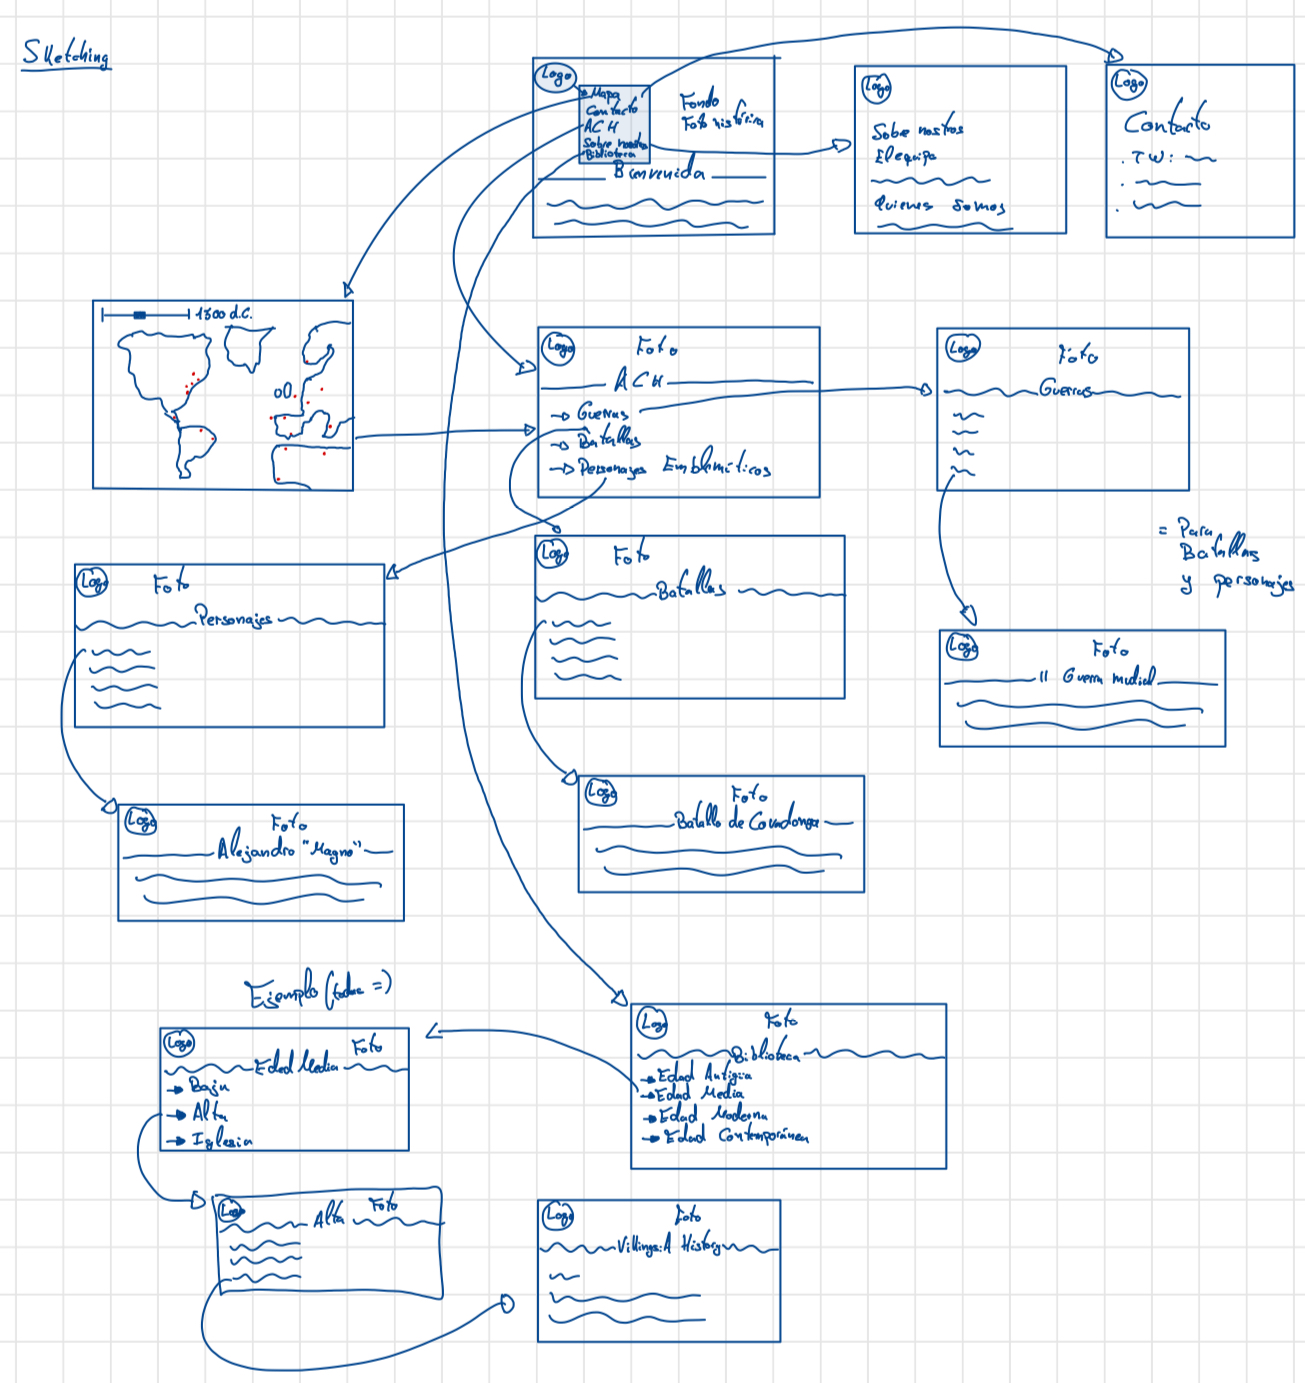 Sketching
Logo
Mapa
Contacto
ACH
Sobre nosotros
Biblioteca
Fondo
Foto histórica
Bienvenida
Logo
Sobe nostros
El equipo
Quienes Somos
Logo
Contacto
. TW:
1800 d.C.
Logo
Foto
ACH
→ Guerras
→ Batallas
→ Personajes Emblemáticos
Logo
Foto
Guerras
= Para
Batallas
y personajes
Logo
Foto
Personajes
Logo
Foto
Batallas
Logo
Foto
II Guerra mudial
Logo
Foto
Alejandro "Magno"
Logo
Foto
Batalla de Covadonga
Ejemplo (todas =)
Logo
Foto
Edad Media
→ Baja
→ Alta
→ Iglesia
Logo
Foto
Biblioteca
→ Edad Antigua
→ Edad Media
→ Edad Moderna
→ Edad Contemporánea
Logo
Foto
Alta
Logo
Foto
Vikings: A History